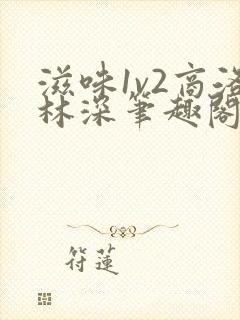 滋味1v2高洛
林深笔趣阁
符莲